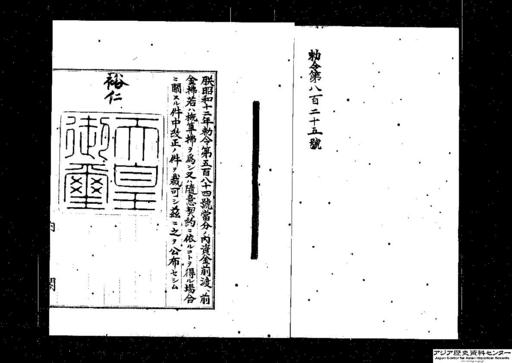 勅令第八百二十五號
朕昭和十三年勅令第五百八十四號當分ノ內資金前渡、前
金拂若ハ概算拂ヲ爲シ又ハ隨意契約ニ依ルコトヲ得ル場合
ニ關スル件中改正ノ件ヲ裁可シ茲ニ之ヲ公布セシム
裕仁
天皇
御璽
內閣
アジア歴史資料センター
Japan Center for Asian Historical Records